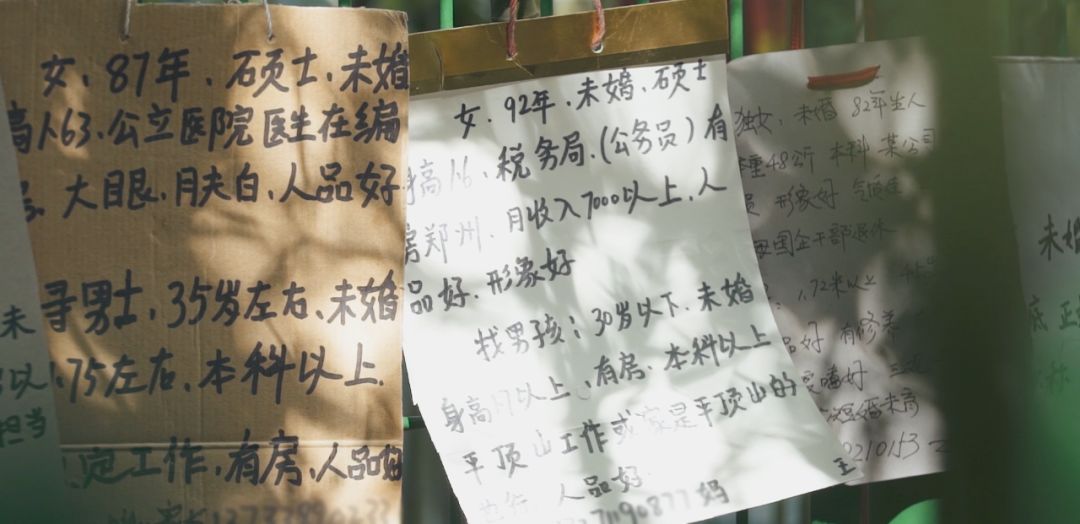 女、87年、硕士、未婚
高1.63.公立医院医生在编
大眼、肤白、人品好
寻男士,35岁左右、未婚
1.75左右、本科以上.
定工作,有房,人品好
女、92年、未婚、硕士
身高1.6、税务局.(公务员)有
房郑州、月收入7000以上、人
品好、形象好
找男孩:30岁以下、未婚
身高1.7以上、有房、本科以上
平顶山工作或家是平顶山的
人品好
妈
王
独女,未婚 82年生人
体重48公斤 本科 某公司
形象好 气质佳
母国企干部退休
1.72米以上
品好 有修养
嗜好
短婚未育
0210153
未婚
底 正
称
未
以
担当